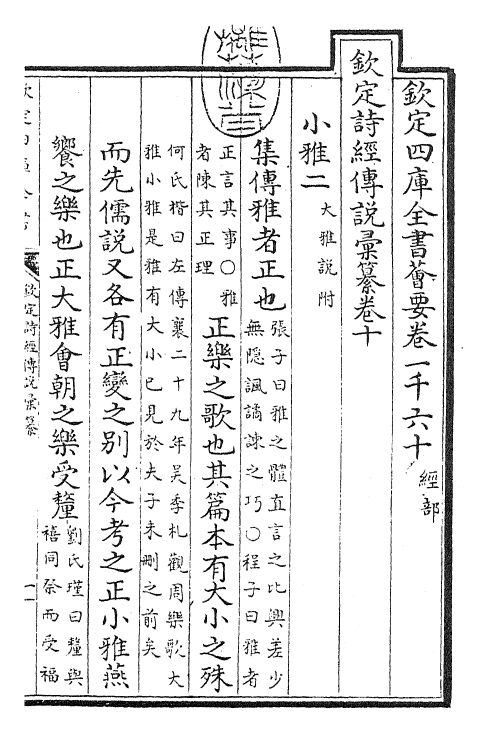 欽定四庫全書薈要卷一千六十 經部
欽定詩經傳說彙纂卷十
小雅二 大雅說附
集傳雅者正也
張子曰雅之體直言之比興差少
無隱諷譎諫之巧○程子曰雅者
正言其事○雅
者陳其正理
正樂之歌也其篇本有大小之殊
何氏楷曰左傳襄二十九年吴季札觀周樂歌大
雅小雅是雅有大小已見於夫子未刪之前矣
而先儒說又各有正變之别以今考之正小雅燕
饗之樂也正大雅會朝之樂受釐
劉氏瑾曰釐與
禧同祭而受福
欽定詩經傳說彙纂